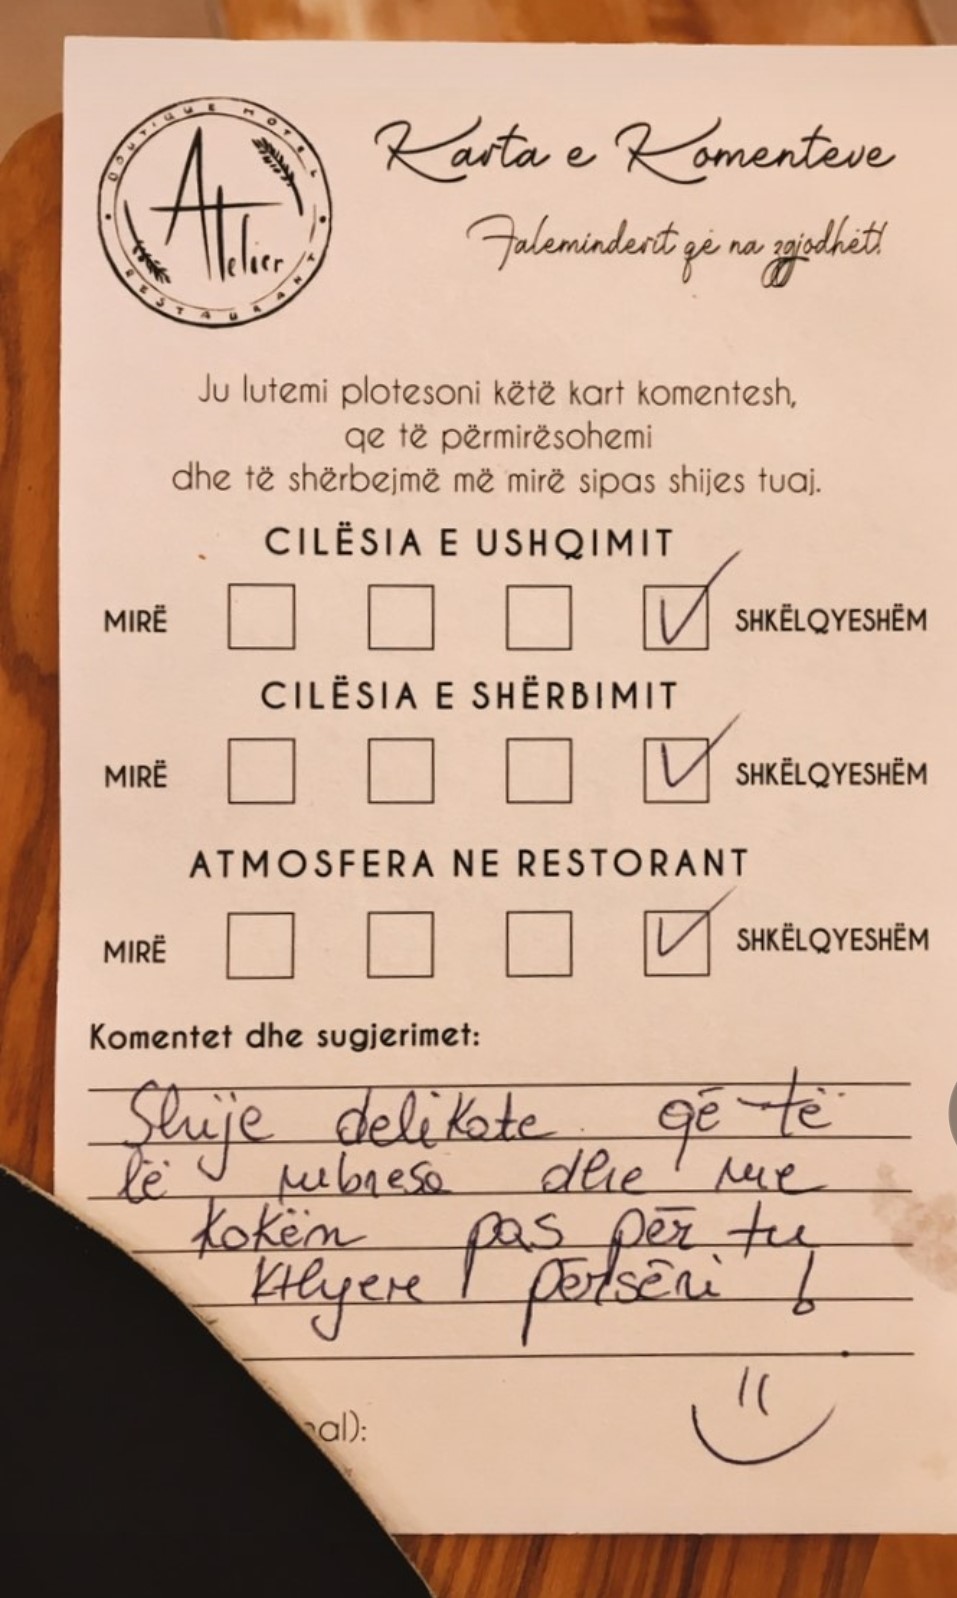 BOUTIQUE HOTEL
Atelier
RESTAURANT
Karta e Komenteve
Faleminderit që na zgjodhët!
Ju lutemi plotesoni këtë kart komentesh,
qe të përmirësohemi
dhe të shërbejmë më mirë sipas shijes tuaj.
CILËSIA E USHQIMIT
MIRË SHKËLQYESHËM
CILËSIA E SHËRBIMIT
MIRË SHKËLQYESHËM
ATMOSFERA NE RESTORANT
MIRË SHKËLQYESHËM
Komentet dhe sugjerimet:
Shije delikate që të
lë mbresa dhe me
kokën pas për tu
kthyere përsëri!
al):